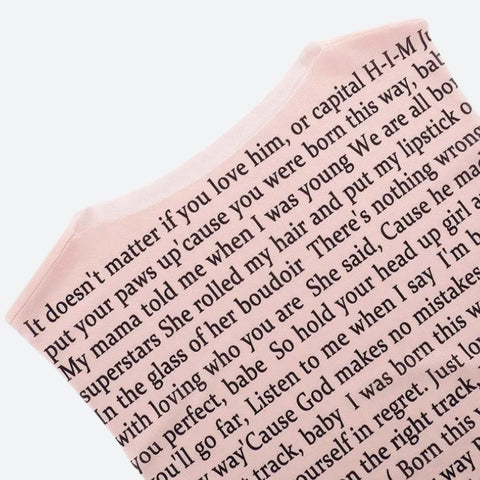 It doesn't matter if you love him, or capital H-I-M
put your paws up'cause you were born this way,
My mama told me when I was young We are all
superstars She rolled my hair and put my lipstick
In the glass of her boudoir There's nothing wrong
with loving who you are She said, Cause he
you perfect, babe So hold your head up girl
you'll go far, Listen to me when I say I'm
way'Cause God makes no mistakes
track, baby I was born this
yourself in regret. Just
on the right track,
( Born this
way